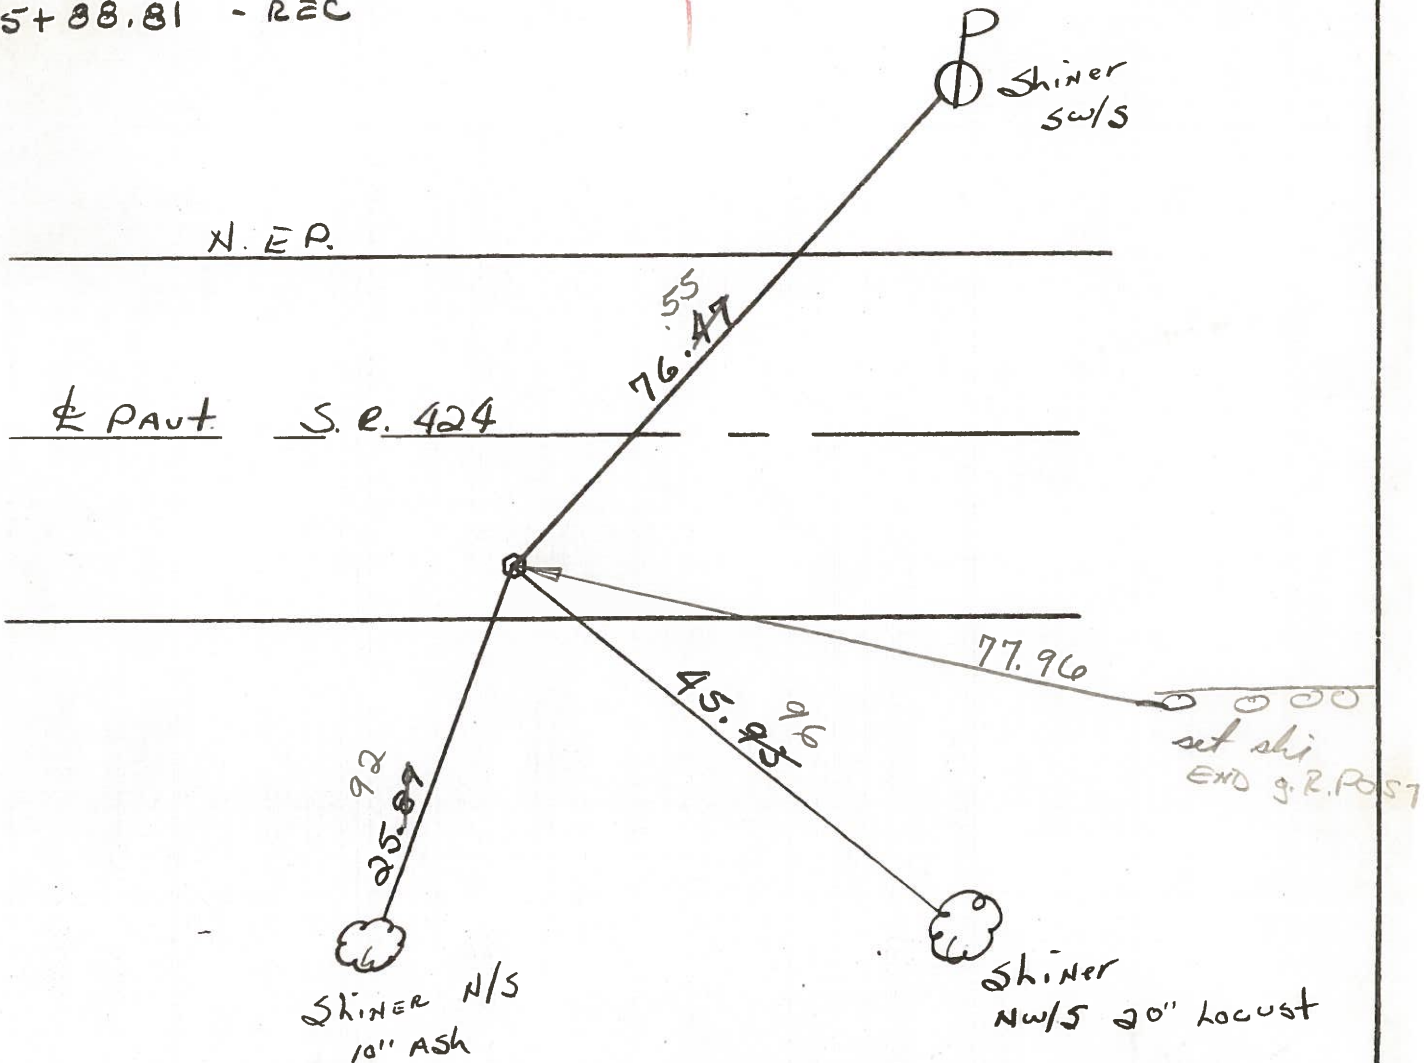 5+88.81 - REC
P
Shiner
SW/S
N. E P.
55
76.47
℄ PAvt. S. R. 424
77.96
45.95
96
set shi
END g.R.POST
92
25.89
Shiner N/S
10" Ash
Shiner
NW/S 20" Locust